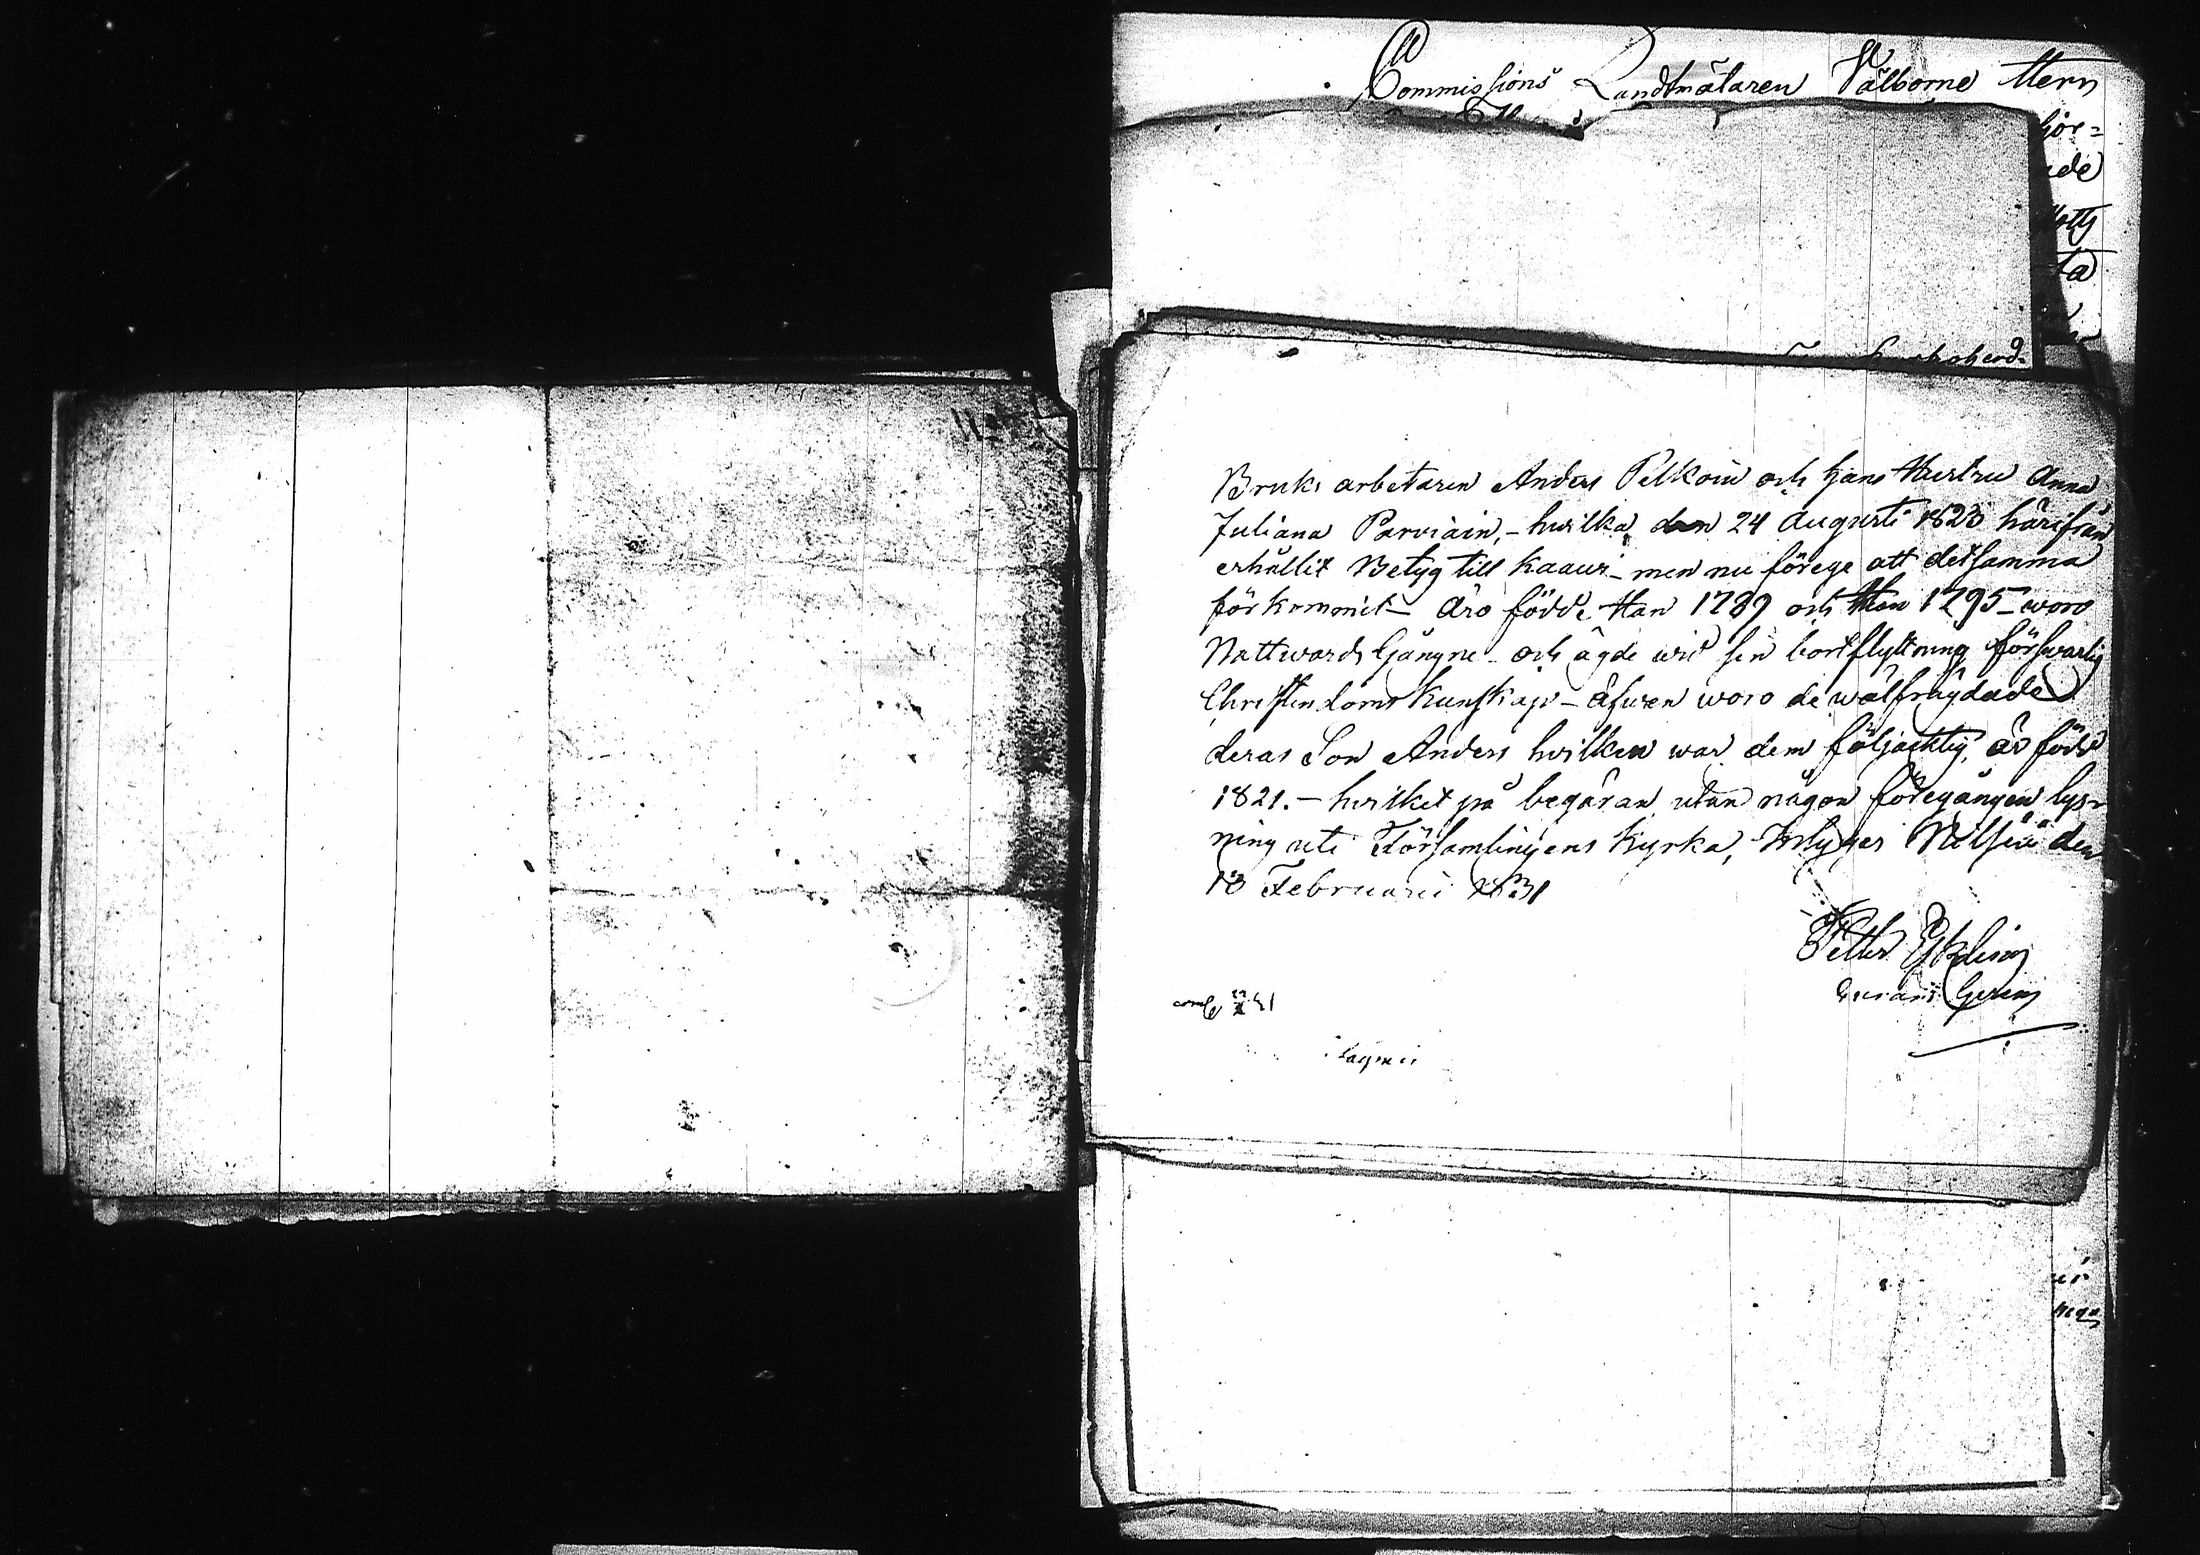 Commissions Landtmätaren Välborne Herr
för=
ade
ta
Bruks arbetaren Anders Pelkoin och hans Hustru Anna
Juliana Parviain, - hwilka den 24 Augusti 1823 härifrån
erhållit Betyg till Kaavi - men nu förege att detsamma
förkommit - äro födde Han 1789 och Hon 1795 - woro
Nattwards Gångne och ägde wid sin bortflyttning förswarlig
Christendoms Kunskap - äfwen woro de wälfrägdade
deras Son Anders hwilken war dem följaktig, är född
1821. - hwilket på begäran utan någon föregången lys-
ning uti Församlingens Kyrka, betygar Nilsiä den
18 Februarii 1831
Petter Eskelin